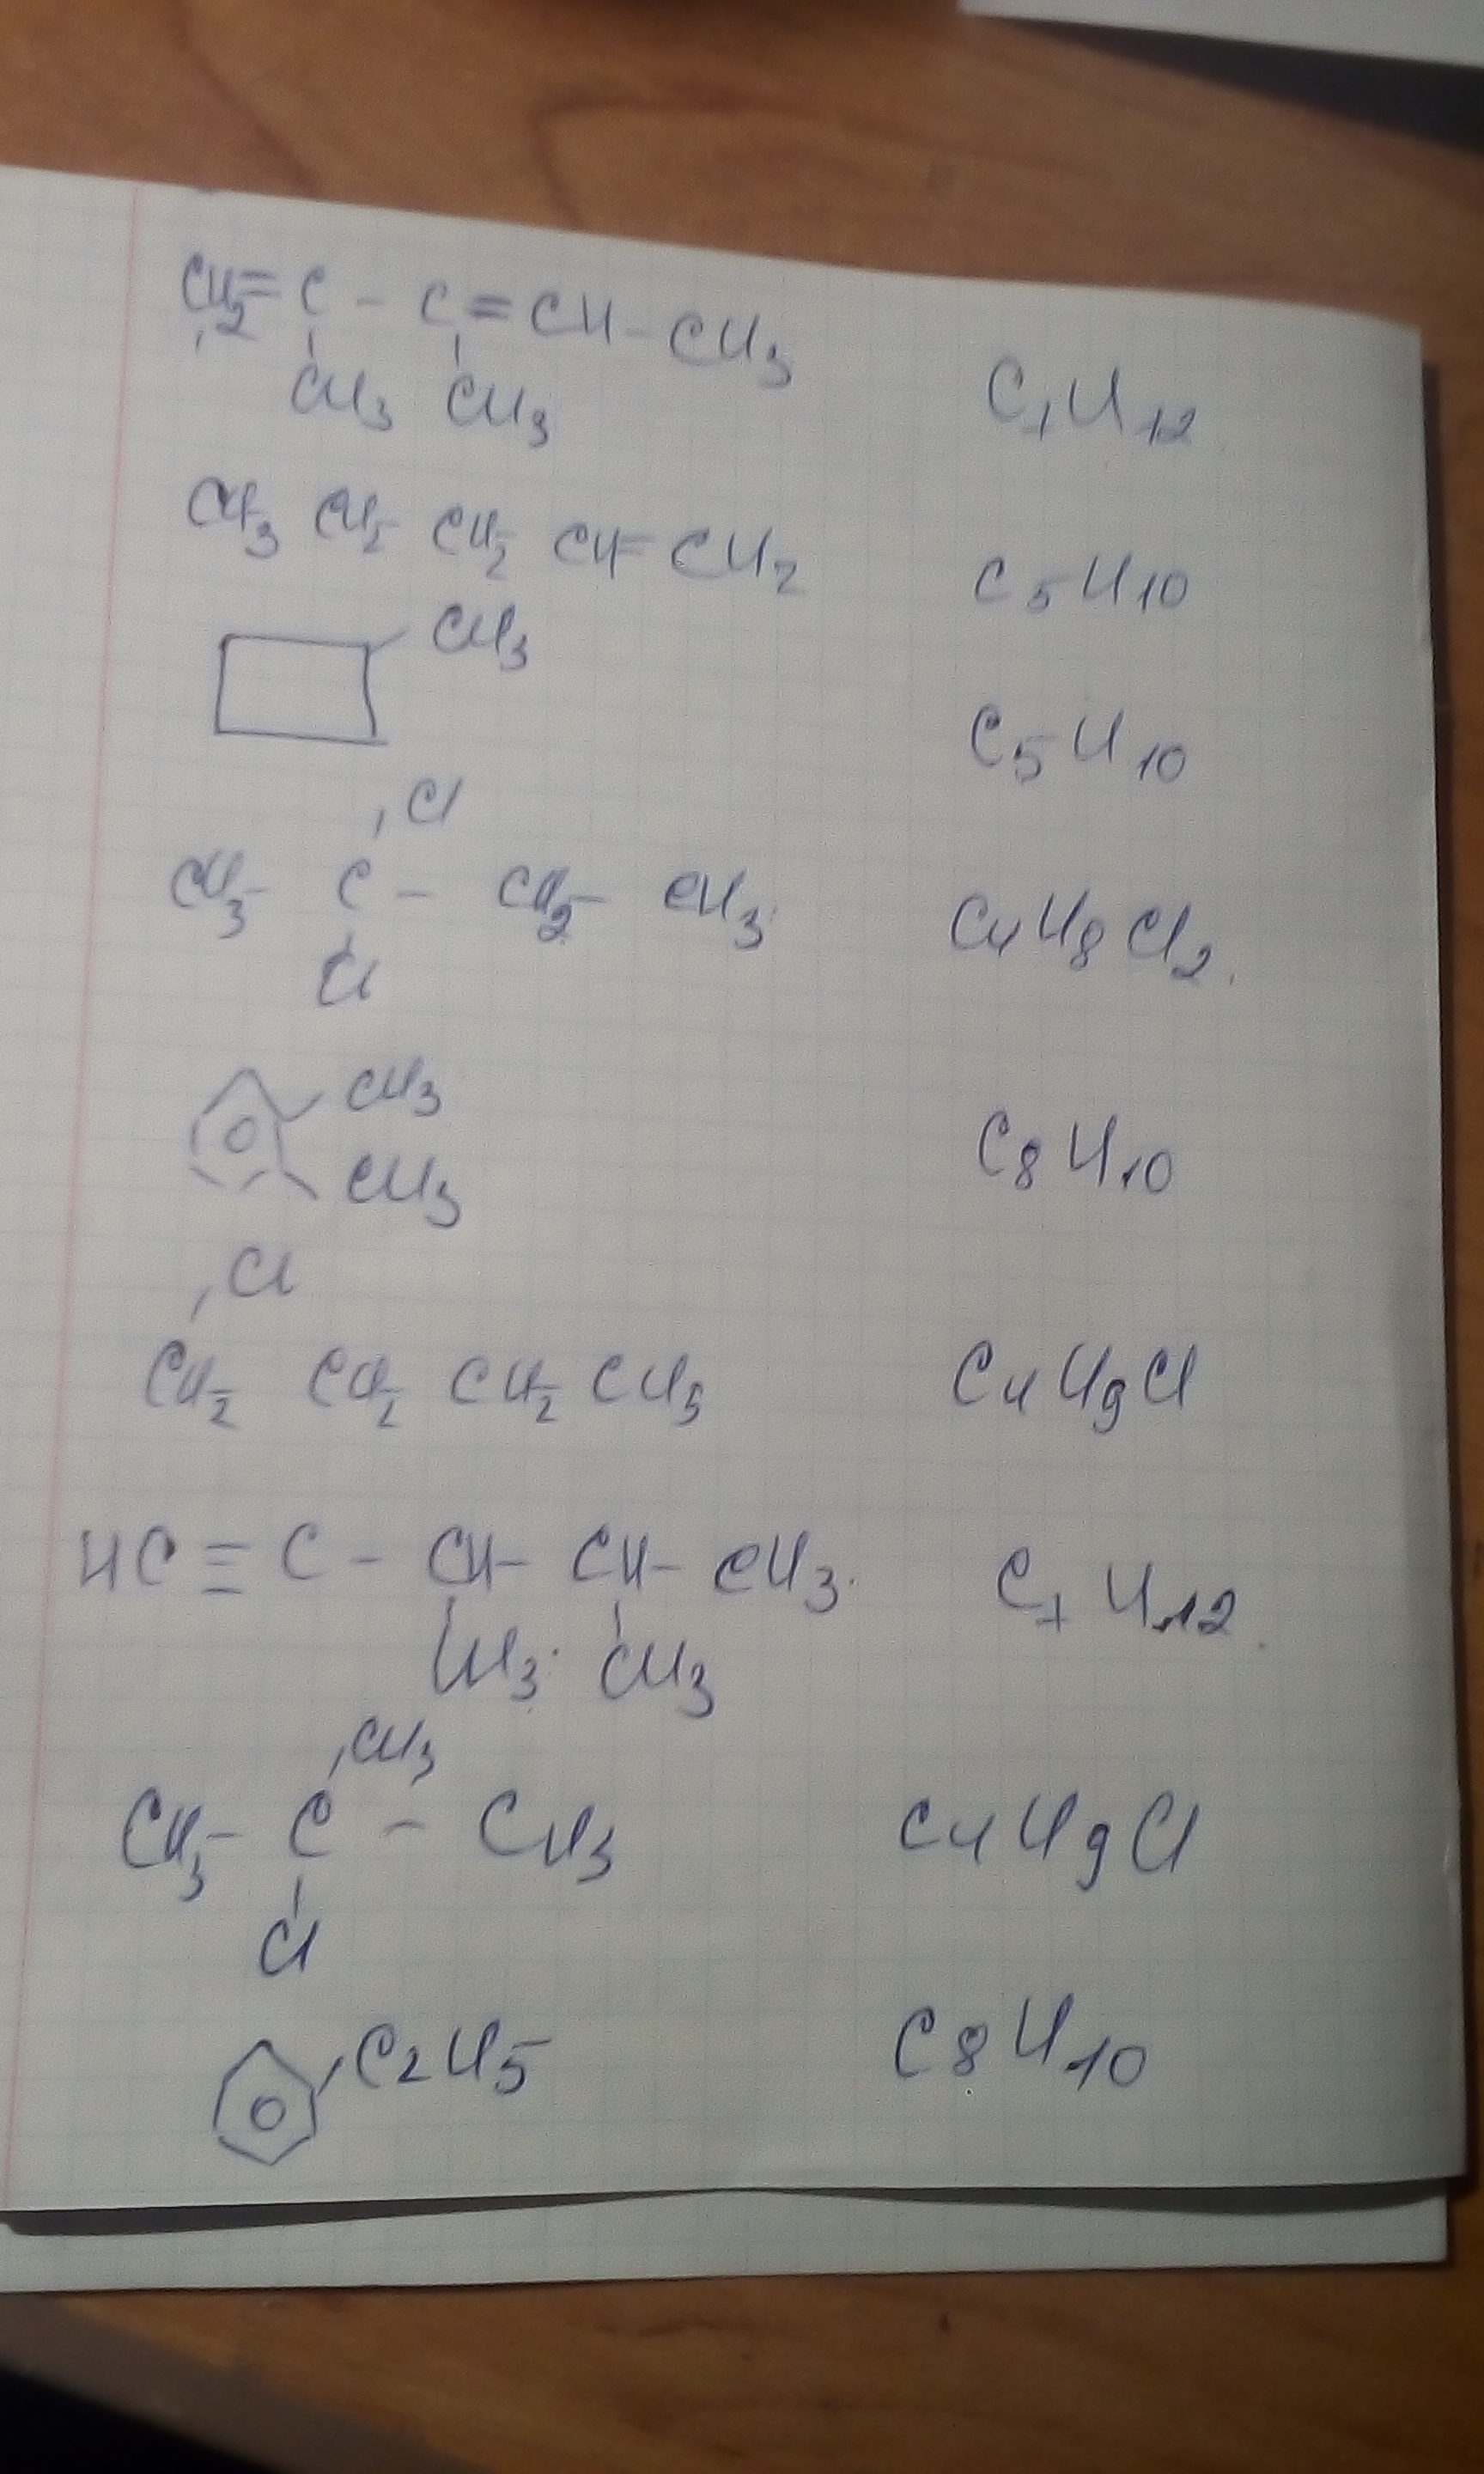 CH2=C-C=CH-CH3
CH3 CH3 C7H12
CH3 CH2- CH2- CH=CH2 C5H10
CH3
C5H10
Cl
CH3- C- CH2- CH3 C4H8Cl2
Cl
CH3
C8H10
CH3
Cl
CH2- CH2- CH2- CH3 C4H9Cl
HC≡C-CH-CH-CH3 C7H12
CH3 CH3
CH3
CH3- C- CH3 C4H9Cl
Cl
C2H5 C8H10